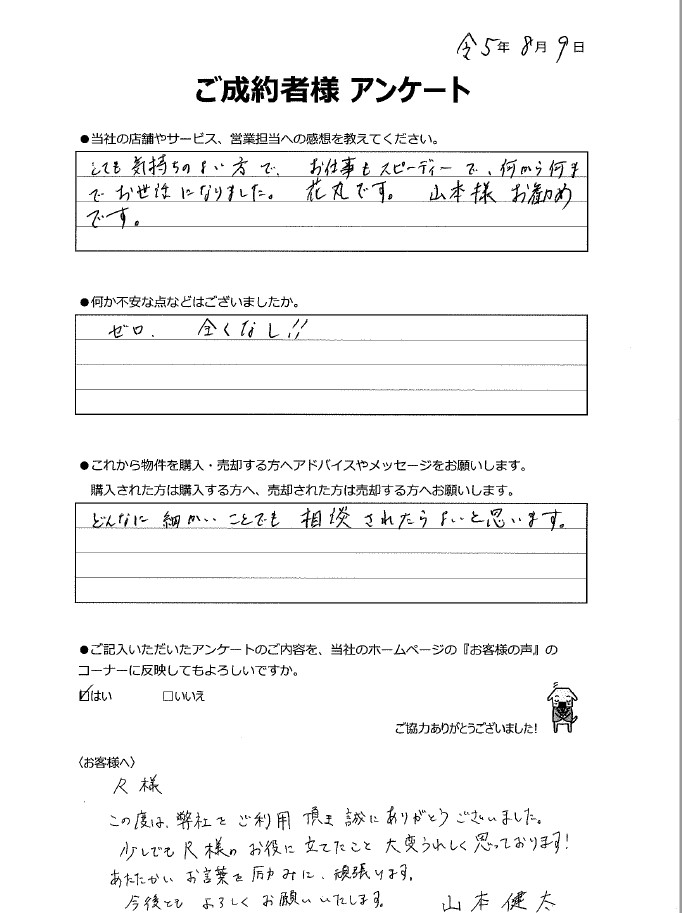 令5年 8月 9日
ご成約者様 アンケート
●当社の店舗やサービス、営業担当への感想を教えてください。
とても気持ちのよい方で、お仕事もスピーディーで、何から何ま
でお世話になりました。 花丸です。 山本様お勧め
です。
●何か不安な点などはございましたか。
ゼロ. 全くなし!!
●これから物件を購入・売却する方へアドバイスやメッセージをお願いします。
購入された方は購入する方へ、売却された方は売却する方へお願いします。
どんなに細かいことでも相談されたらよいと思います。
●ご記入いただいたアンケートのご内容を、当社のホームページの『お客様の声』の
コーナーに反映してもよろしいですか。
☑はい □いいえ
ご協力ありがとうございました!
〈お客様へ〉
R様
この度は、弊社をご利用頂き誠にありがとうございました。
少しでもR様のお役に立てたこと大変うれしく思っております!
あたたかいお言葉を励みに、頑張ります。
今後ともよろしくお願いいたします。 山本健太